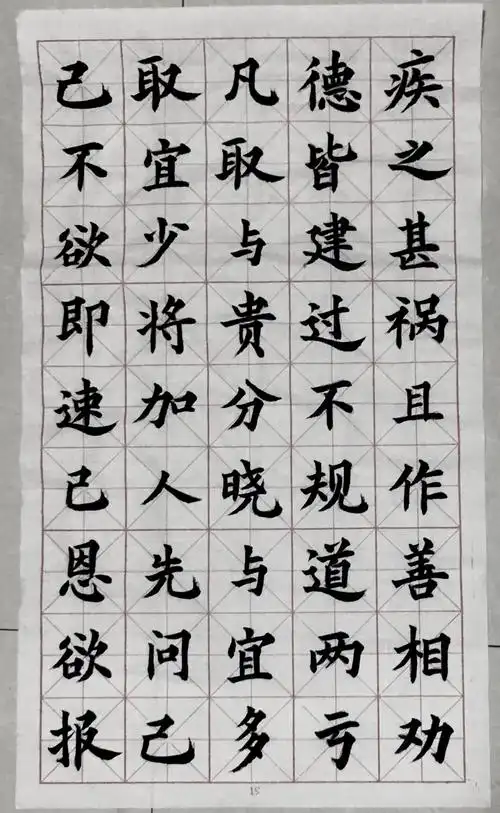 疾之甚祸且作善相劝
德皆建过不规道两亏
凡取与贵分晓与宜多
取宜少将加人先问己
己不欲即速已恩欲报
15